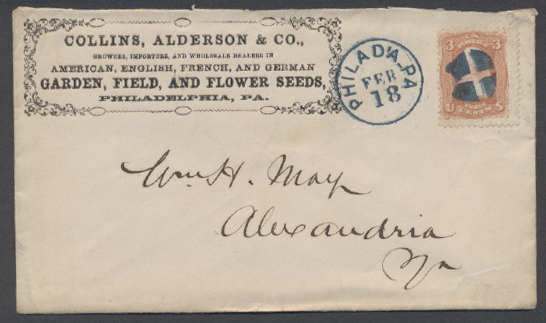 COLLINS, ALDERSON & CO.,
GROWERS, IMPORTERS, AND WHOLESALE DEALERS IN
AMERICAN, ENGLISH, FRENCH, AND GERMAN
GARDEN, FIELD, AND FLOWER SEEDS,
PHILADELPHIA, PA.
PHILAD'A. PA.
FEB
18
3 3
U S
CENTS
Wm. H. May
Alexandria
Va